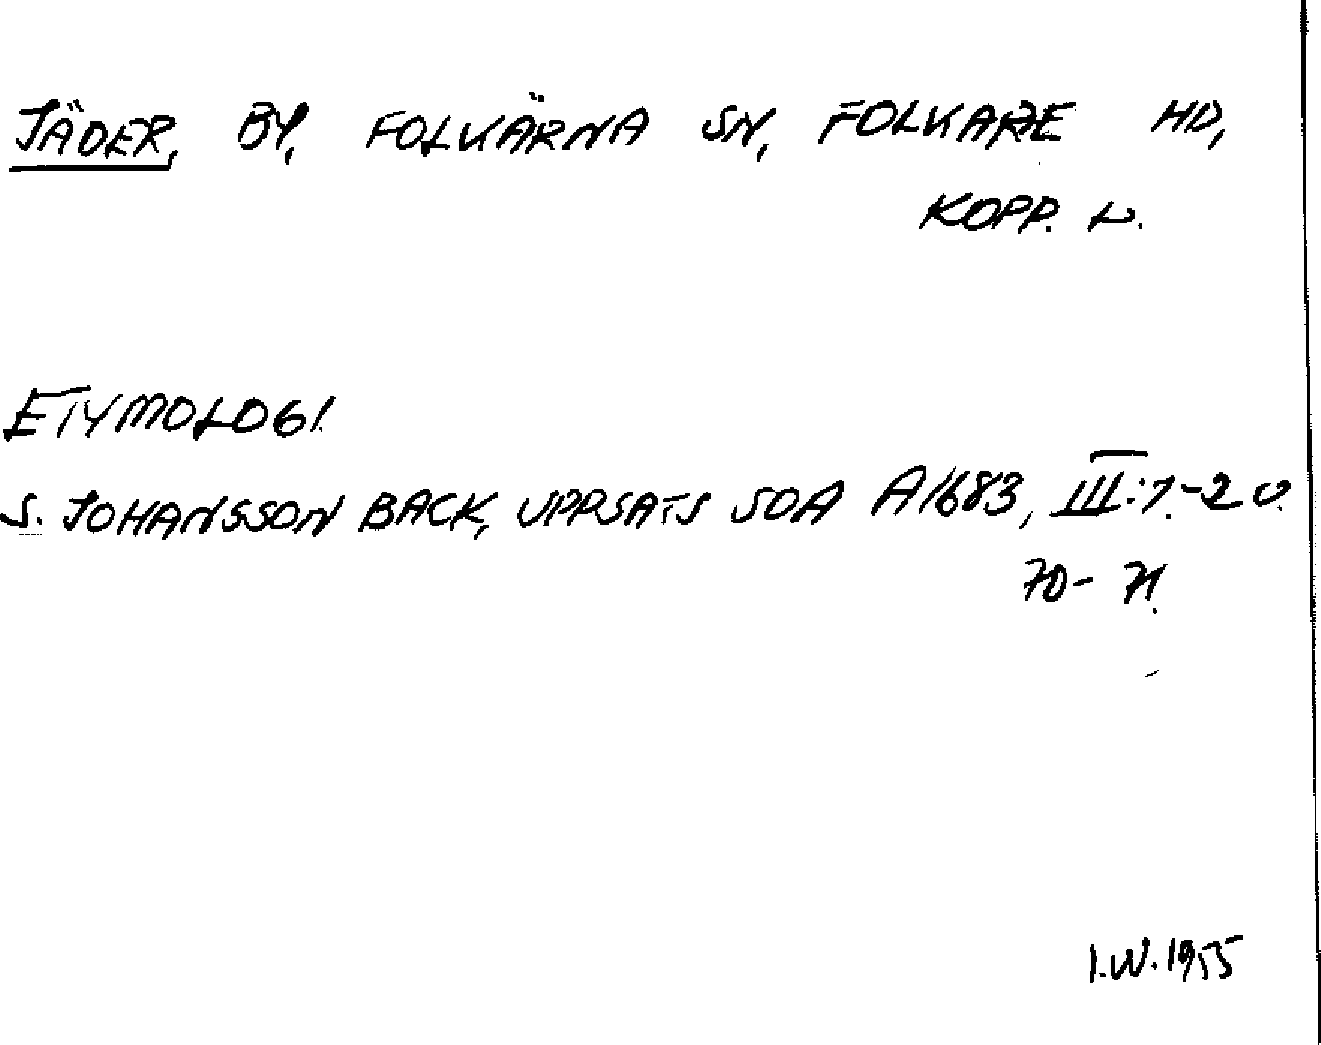 JÄDER, BY, FOLKÄRNA SN, FOLKARE HD,
KOPP. L.
ETYMOLOGI.
S. JOHANSSON BACK, UPPSATS SOA A1683, III:1.-2 O.
70-71.
I.W. 1955